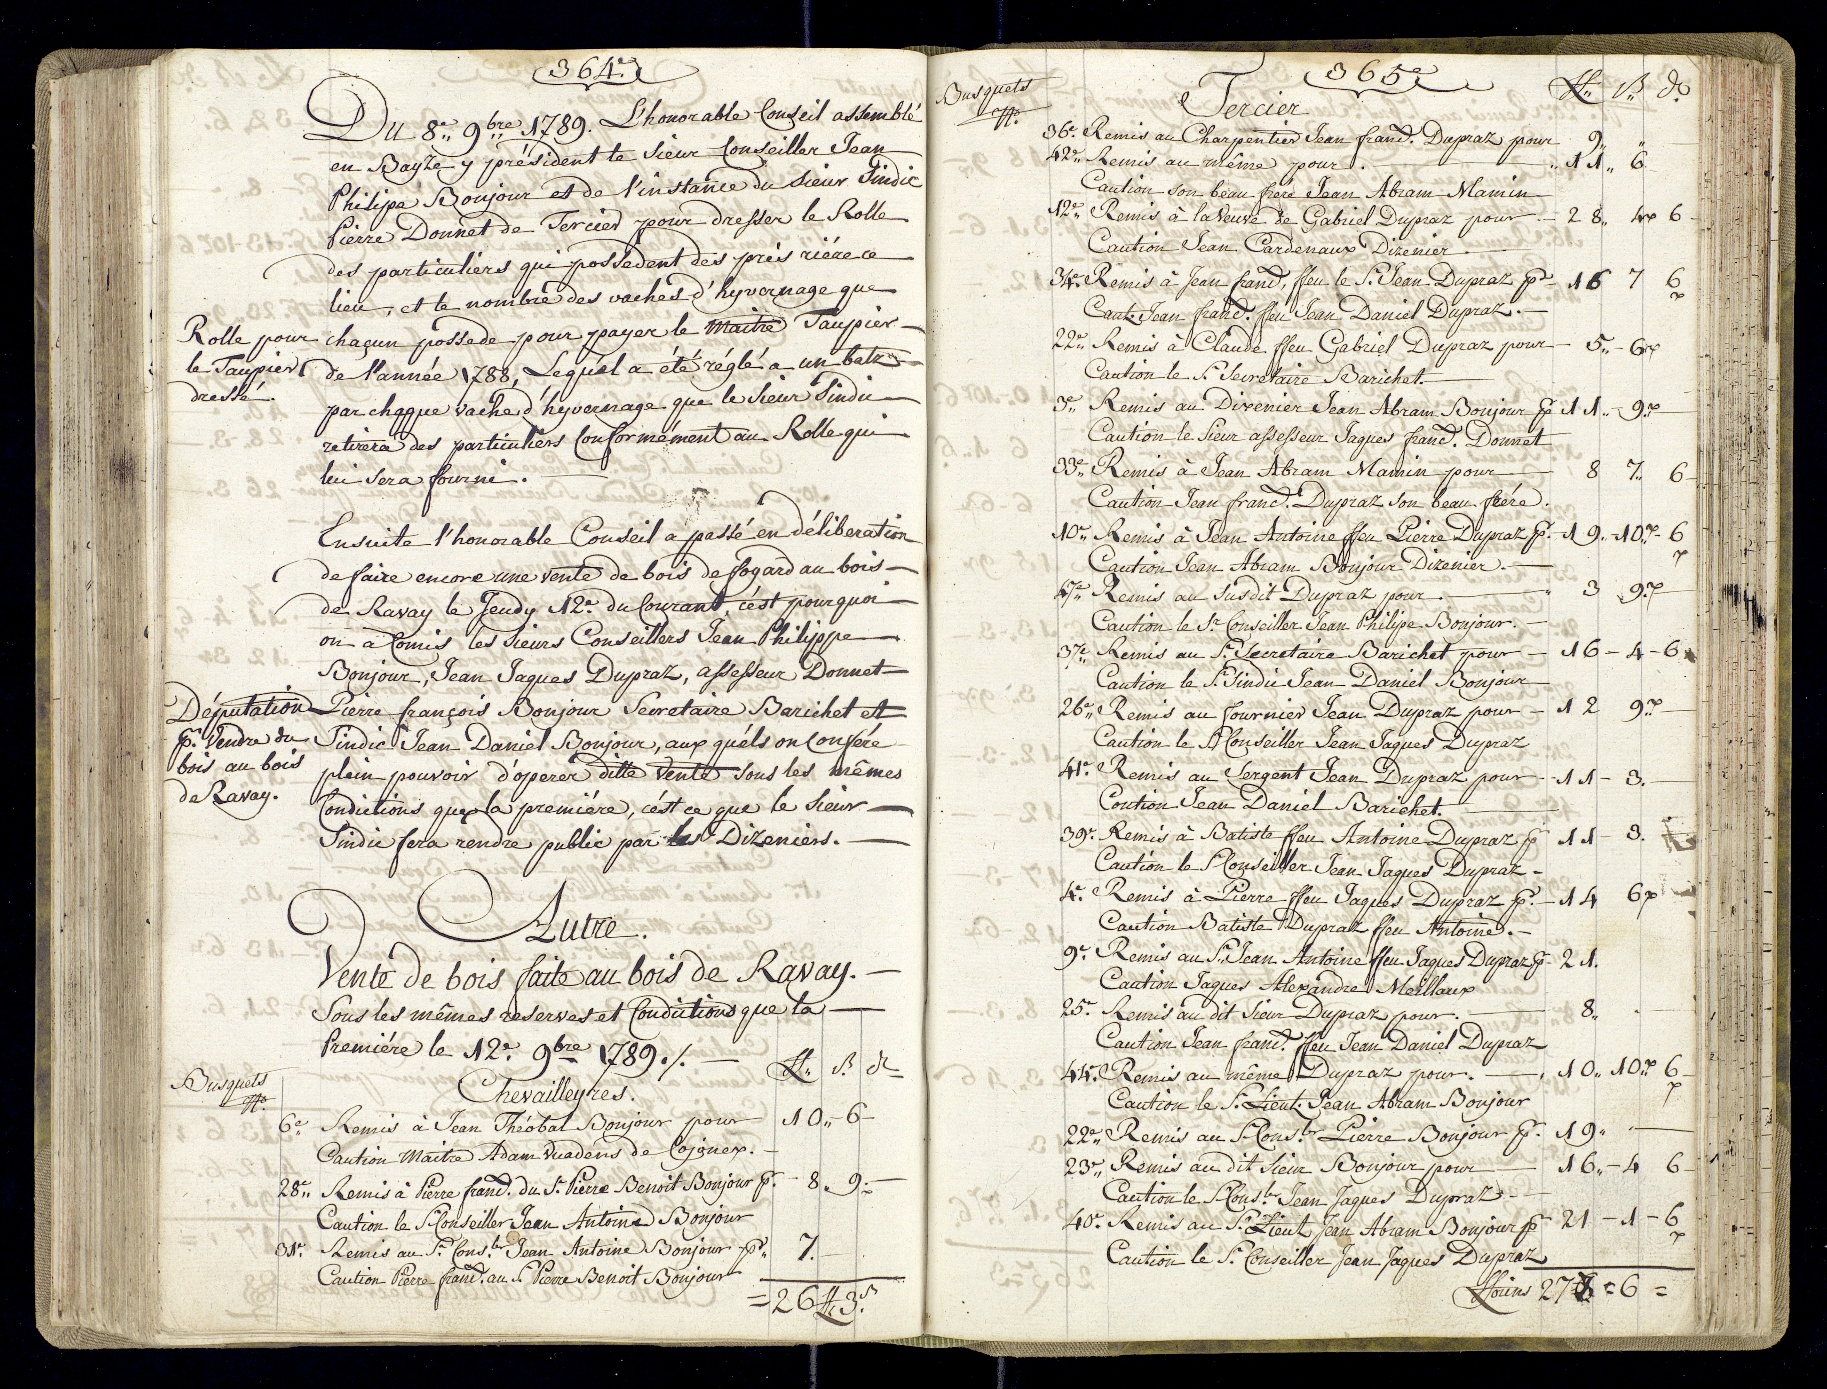 364.e
Du 8.e 9.bre 1789. L'honorable Conseil assemblé
en Bayze y président le Sieur Conseiller Jean
Philipe Bonjour et de l'instance du Sieur Sindic
Pierre Donnet de Tercier pour dresser le Rolle
des particuliers qui possedent des prés riére ce
lieu, et le nombre des vaches d'hyvernage que
Rolle pour le Taupier dressé.
chaqun possede pour payer le Maître Taupier
de l'année 1788, Lequél a été réglé a un batz
par chaqque vache d'hyvernage que le Sieur Sindic
retirera des particuliers Conformément au Rolle qui
lui sera fourni.
Ensuite l'honorable Conseil a passé en déliberation
de faire encore une vente de bois de fogard au bois
de Ravay le Jeudy 12.e du Courant, c'ést pourquoi
on a Comis les Sieurs Conseillers Jean Philippe
Bonjour, Jean Jaques Dupraz, assesseur Donnet
Députation p.r vendre du bois au bois de Ravay.
Pierre françois Bonjour Secretaire Barichet et
Sindic Jean Daniel Bonjour, aux quéls on Confére
plein pouvoir d'operer ditte vente sous les mêmes
Condictions que la premiére, c'ést ce que le Sieur
Sindic fera rendre public par les Dizeniers.
Autre.
Vente de bois faite au bois de Ravay.
Sous les mêmes reserves et Condictions que la
Premiére le 12.e 9.bre 1789 ./.
Busquets
Chevailleyres.
6.e Remis à Jean Théobal Bonjour pour 10 „ 6
Caution Maitre Adam Vuadens de Cojonex.
28.e Remis à Pierre franc̃. du S.r Pierre Benoit Bonjour p.r 8 „ 9
Caution le S.r Conseiller Jean Antoine Bonjour
31.e Remis au S.r Cons.ler Jean Antoine Bonjour p.r 7.
Caution Pierre franc̃. au S.r Pierre Benoit Bonjour
= 26 ff 3 ß
365.e
Busquets
Tercier
36.e Remis au Charpentier Jean franc̃. Dupraz pour 9 „
42.e Remis au même pour 11 „ 6
Caution son beau frére Jean Abram Mamin
12.e Remis à la Veuve de Gabriel Dupraz pour 28 „ 4 6
Caution Jean Cardenaux Dizenier
34.e Remis à Jean franc̃. ffeu le S.r Jean Dupraz p.r 16 7 6
Caut. Jean franc̃. ffeu Jean Daniel Dupraz.
22.e Remis à Claude ffeu Gabriel Dupraz pour 5 „ 6
Caution le S.r Secretaire Barichet.
3.e Remis au Dizenier Jean Abram Bonjour p.r 11 „ 9
Caution le Sieur assesseur Jaques franc̃. Donnet
33.e Remis à Jean Abram Mamin pour 8 7 „ 6
Caution Jean franc̃. Dupraz son beau frére.
10.e Remis à Jean Antoine ffeu Pierre Dupraz p.r 19 „ 10 6
Caution Jean Abram Bonjour Dizenier.
47.e Remis au Susdit Dupraz pour 3 9
Caution le S.r Conseiller Jean Philipe Bonjour.
37.e Remis au S.r Secretaire Barichet pour 16 – 4 – 6
Caution le S.r Sindic Jean Daniel Bonjour
26.e Remis au fournier Jean Dupraz pour 12 9
Caution le S.r Conseiller Jean Jaques Dupraz
41.e Remis au Sergent Jean Dupraz pour 11 – 3.
Coution Jean Daniel Barichet.
39.e Remis à Batiste ffeu Antoine Dupraz p.r 11 – 3.
Caution le S.r Conseiller Jean Jaques Dupraz
4.e Remis à Pierre ffeu Jaques Dupraz p.r 14 6
Caution Batiste Dupraz ffeu Antoine.
9.e Remis au S.r Jean Antoine ffeu Jaques Dupraz p.r 21.
Caution Jaques Alexandre Meillaux
25.e Remis au dit Sieur Dupraz pour. 8 „
Caution Jean franc̃. ffeu Jean Daniel Dupraz
44.e Remis au même Dupraz pour. 10 „ 10 6
Caution le S.r Lieut. Jean Abram Bonjour
22.e Remis au S.r Cons.ler Pierre Bonjour p.r 19 „
23.e Remis au dit Sieur Bonjour pour 16 „ 4 6
Caution le S.r Cons.ler Jean Jaques Dupraz
40.e Remis au S.r Lieut. Jean Abram Bonjour p.r 21 – 1 – 6
Caution le S.r Conseiller Jean Jaques Dupraz